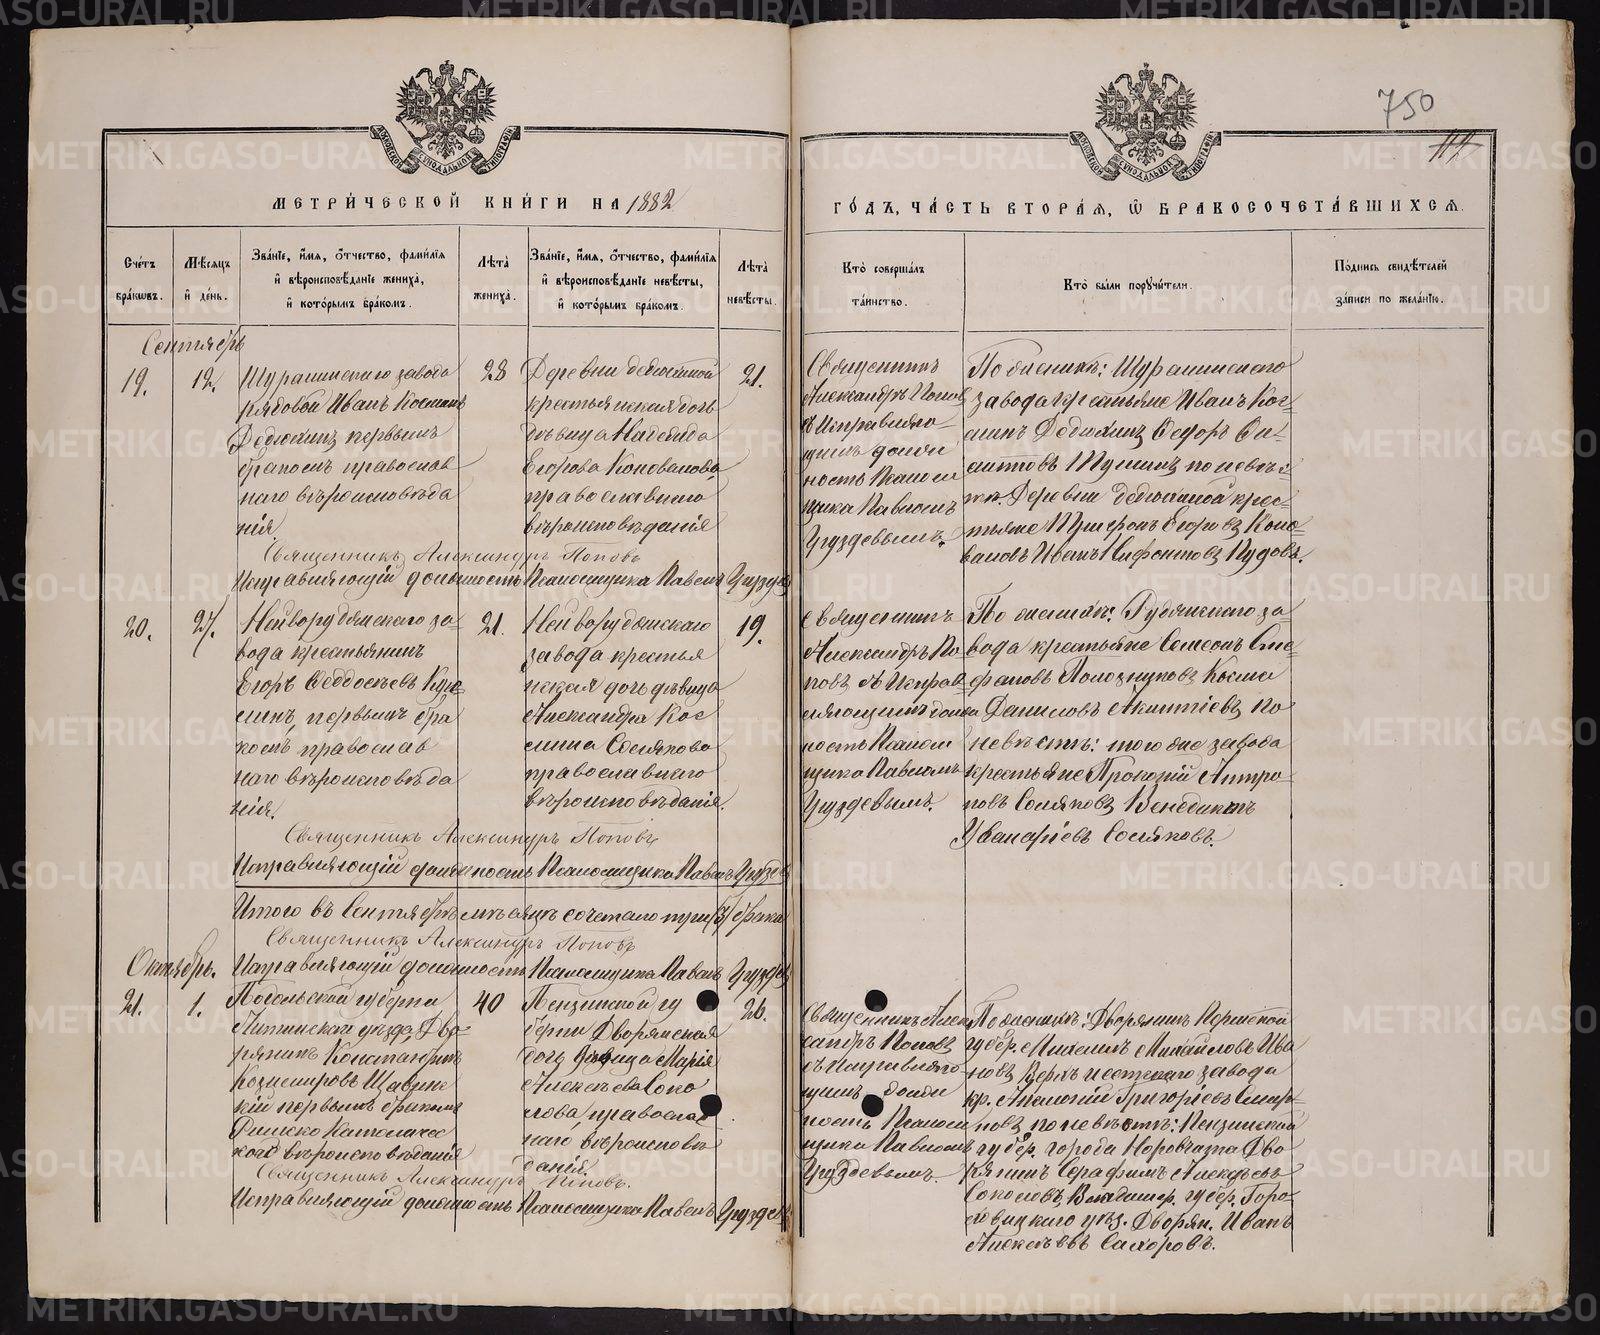 750
МЕТРИ́ЧЕСКОЙ КНИ́ГИ НА 1882
ГО́ДЪ, ЧА́СТЬ ВТОРА́Я, Ѿ БРАКОСОЧЕТА́ВШИХСЯ.
Сче́тъ бра́ковъ.
Мѣ́сяцъ и де́нь.
Зва́нїе, и́мя, о́тчество, фами́лїя и вѣроисповѣ́данїе жениха̀, и кото́рымъ бра́комъ.
Лѣта̀ жениха̀.
Зва́нїе, и́мя, о́тчество, фами́лїя и вѣроисповѣ́данїе невѣ́сты, и кото́рымъ бра́комъ.
Лѣта̀ невѣ́сты.
Кто̀ соверша́лъ та́инство.
Кто̀ бы́ли поручи́тели.
По́дпись свидѣ́телей за́писи по жела́нїю.
Сентябрь
19.
12.
Шуралинскаго завода
рядовой Иванъ Косминъ
Дедюхинъ первымъ
бракомъ православ
наго вѣроисповѣда
нія
28
Деревни Дедюхиной
крестьянская дочь
дѣвица Надежда
Егорова Коновалова,
православнаго
вѣроисповѣданія
21.
Священникъ
Александръ Поповъ
съ Исправляю-
щимъ долж
ность Псалом
щика Павломъ
Груздевымъ.
По женихѣ: Шуралинскаго
завода крестьяне Иванъ Кос-
минъ Дедюхинъ Федоръ
по невѣс-
тѣ. Деревни Дедюхиной крес-
тьяне Егоровъ Коно-
валовъ Иванъ Нифонтовъ Пудовъ.
Священникъ Александръ Поповъ
Исправляющій должность Псаломщика Павелъ Груздевъ
20.
27.
Нейворудянскаго за-
вода крестьянинъ
Егоръ Феддосѣевъ
первымъ бра
комъ, православ
наго вѣроисповѣда
нія.
21.
Нейворудянскаго
завода крестья
нская дочь дѣвица
Александра Кос
мина Солякова
православнаго
вѣроисповѣданія.
19.
Священникъ
Александръ По
повъ съ Исправ
ляющимъ долж
ность Псалом
щика Павломъ
Груздевымъ.
По женихѣ: Рудянскаго за-
вода крестьяне Семеонъ Сте-
фановъ Полозниковъ Косма
Даниловъ Акинтіевъ по
невѣстѣ: того же завода
крестьяне Прокопій Антро-
повъ Соляковъ Венедиктъ
Соляковъ.
Священникъ Александръ Поповъ
Исправляющій должность Псаломщика Павелъ Груздевъ
Итого въ Сентябрѣ мѣсяцѣ сочетано три (3) брака
Священникъ Александръ Поповъ
Октябрь.
Исправляющій должность Псаломщика Павелъ Груздевъ
21.
1.
Подольской губерніи
Литинскаго уѣзда, Дво-
рянинъ Константинъ
Козимировъ
кій первымъ бракомъ
Римско Католичес
каго вѣроисповѣданія
40
Пензинской гу
берніи Дворянская
дочь дѣвица Марія
Алексѣева Соко
лова, православ
наго вѣроисповѣ
данія.
26.
Священникъ Алек
сандръ Поповъ
съ Исправляю-
щимъ долж
ность Псалом
щика Павломъ
Груздевымъ.
По женихѣ: Дворянинъ Пермской
губер. Михаилъ Михайловъ Ива
новъ, Верхъ Исетскаго завода
кр. Григорьевъ Смир-
новъ, по невѣстѣ: Пензинской
губер. города Норовчатка Дво
рянинъ Серафимъ Алексѣевъ
Соколовъ, Владимер. губер. Горо-
ховицкаго уѣз. Дворян. Иванъ
Алексѣевъ Сахоровъ.
Священникъ Александръ Поповъ.
Исправляющій должность Псаломщика Павелъ Груздевъ
METRIKI.GASO-URAL.RU